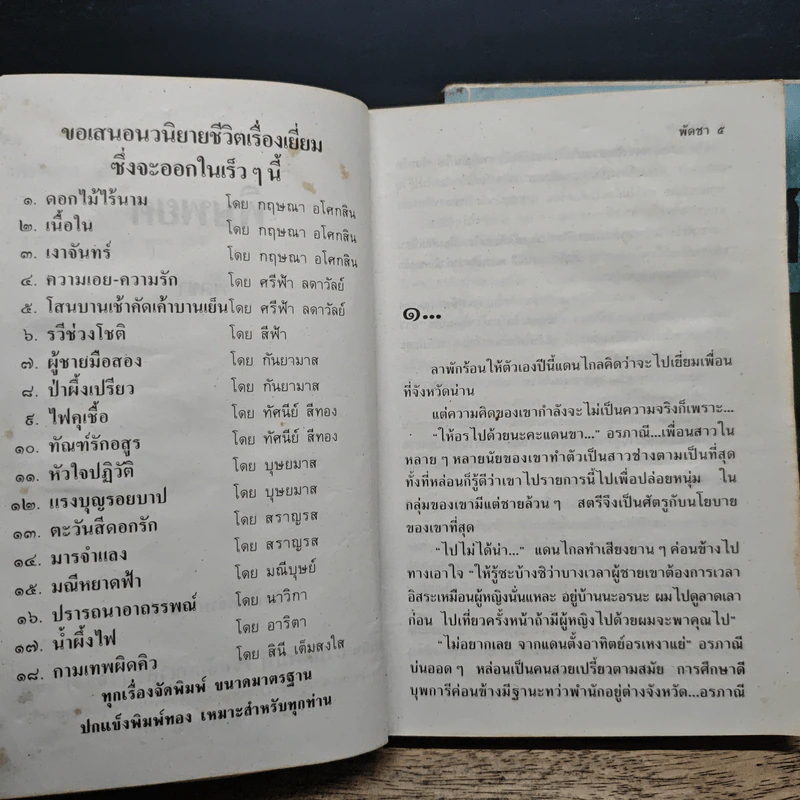 ขอเสนอนวนิยายชีวิตเรื่องเยี่ยม
ซึ่งจะออกในเร็ว ๆ นี้
๑. ดอกไม้ไร้นาม โดย กฤษณา อโศกสิน
๒. เนื้อใน โดย กฤษณา อโศกสิน
๓. เงาจันทร์ โดย กฤษณา อโศกสิน
๔. ความเอย-ความรัก โดย ศรีฟ้า ลดาวัลย์
๕. โสนบานเช้าคัดเค้าบานเย็น โดย ศรีฟ้า ลดาวัลย์
๖. รวีช่วงโชติ โดย สีฟ้า
๗. ผู้ชายมือสอง โดย กันยามาส
๘. ป่าผึ้งเปรียว โดย กันยามาส
๙. ไฟคุเชื้อ โดย ทัศนีย์ สีทอง
๑๐. ทัณฑ์รักอสูร โดย ทัศนีย์ สีทอง
๑๑. หัวใจปฏิวัติ โดย บุษยมาส
๑๒. แรงบุญรอยบาป โดย บุษยมาส
๑๓. ตะวันสีดอกรัก โดย สราญรส
๑๔. มารจำแลง โดย สราญรส
๑๕. มณีหยาดฟ้า โดย มณีบุษย์
๑๖. ปรารถนาอาถรรพณ์ โดย นาวิกา
๑๗. น้ำผึ้งไฟ โดย อาริตา
๑๘. กามเทพผิดคิว โดย สินี เต็มสงใส
ทุกเรื่องจัดพิมพ์ ขนาดมาตรฐาน
ปกแข็งพิมพ์ทอง เหมาะสำหรับทุกท่าน
พัดชา ๕
๑...
ลาพักร้อนให้ตัวเองปีนี้แดนไกลคิดว่าจะไปเยี่ยมเพื่อน
ที่จังหวัดน่าน
แต่ความคิดของเขากำลังจะไม่เป็นความจริงก็เพราะ...
"ให้อรไปด้วยนะคะแดนขา..." อรภาณี...เพื่อนสาวใน
หลาย ๆ หลายนัยของเขาทำตัวเป็นสาวช่างตามเป็นที่สุด
ทั้งที่หล่อนก็รู้ดีว่าเขาไปรายการนี้ไปเพื่อปล่อยหนุ่ม ใน
กลุ่มของเขามีแต่ชายล้วน ๆ สตรีจึงเป็นศัตรูกับนโยบาย
ของเขาที่สุด
"ไปไม่ได้น่า..." แดนไกลทำเสียงยาน ๆ ค่อนข้างไป
ทางเอาใจ "ให้รู้ซะบ้างซิว่าบางเวลาผู้ชายเขาต้องการเวลา
อิสระเหมือนผู้หญิงนั่นแหละ อยู่บ้านนะอรนะ ผมไปดูลาดเลา
ก่อน ไปเที่ยวครั้งหน้าถ้ามีผู้หญิงไปด้วยผมจะพาคุณไป"
"ไม่อยากเลย จากแดนตั้งอาทิตย์อรเหงาแย่" อรภาณี
บ่นออด ๆ หล่อนเป็นคนสวยเปรี้ยวตามสมัย การศึกษาดี
บุพการีค่อนข้างมีฐานะทว่าพำนักอยู่ต่างจังหวัด...อรภาณี